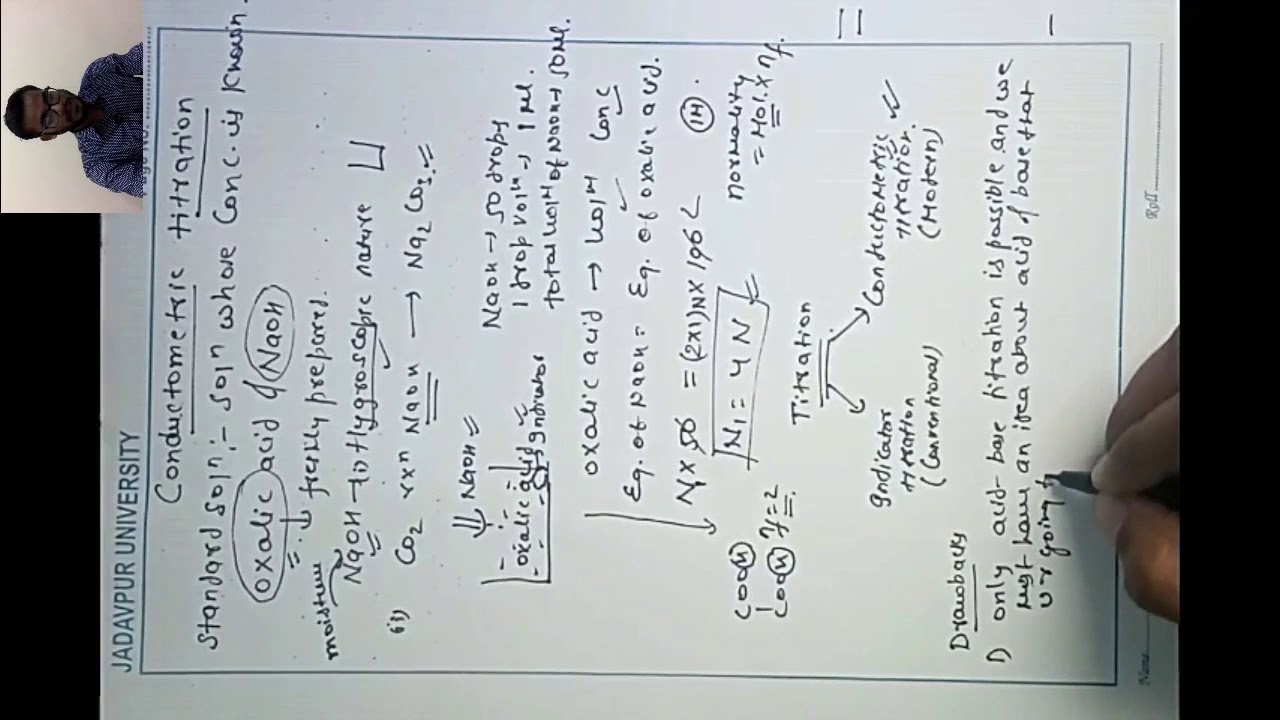 JADAVPUR UNIVERSITY
Page No.
Conductometric titration
Standard soln :- soln whose Conc. is known.
oxalic acid & NaOH
↓ freshly prepared.
moisture
NaOH → i) Hygroscopic nature
ii) CO2 rxn NaOH → Na2CO3.
NaOH
oxalic acid
Indicator
NaOH → 50 drops
1 drop volm → 1 ml.
total volm of NaOH → 50 ml.
oxalic acid → volm Conc
Eq. of NaOH = Eq. of oxalic acid.
N1 × 50 = (2×1)N × 100
1M
N1 = 4N
COOH
COOH
=2
normality
= Mol. × nf.
Titration
Indicator titration (Conventional)
Conductometric titration. (Modern)
Drawbacks
1) only acid-base titration is possible and we
must have an idea about acid & base that
v r going
Name
Roll